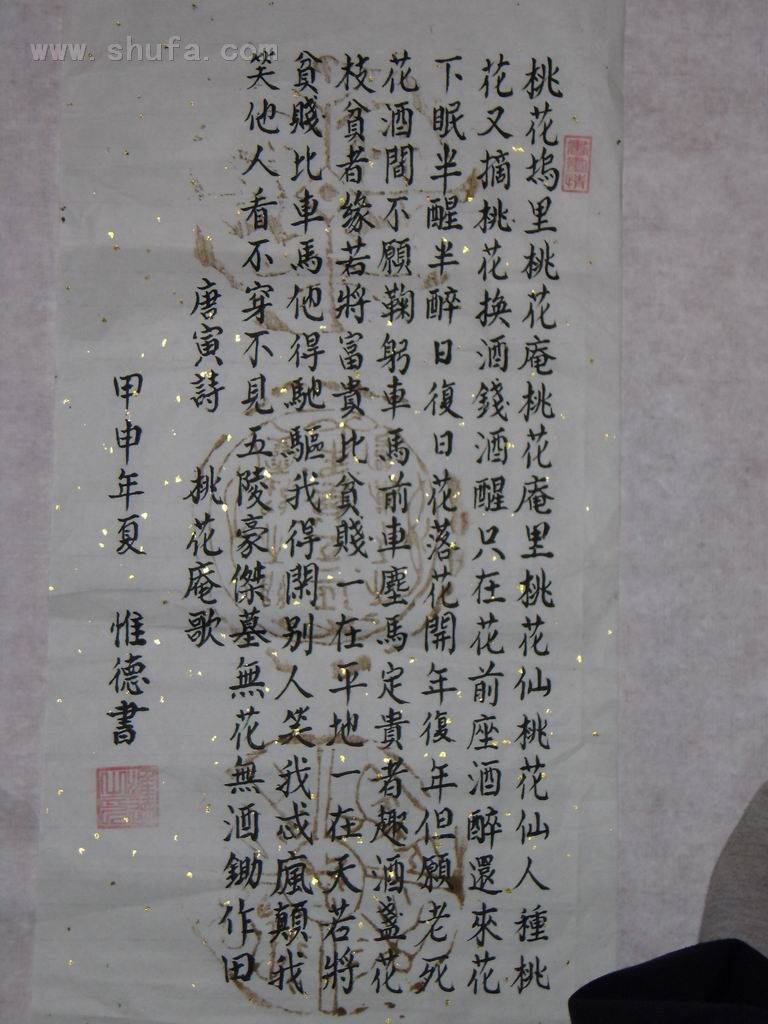 www.shufa.com
桃花塢里桃花庵桃花庵里桃花仙桃花仙人種桃
花又摘桃花换酒錢酒醒只在花前座酒醉還來花
下眠半醒半醉日復日花落花開年復年但願老死
花酒間不願鞠躬車馬前車塵馬定貴者趣酒盞花
枝貧者緣若將富貴比貧賤一在平地一在天若將
貧賤比車馬他得馳驅我得閑别人笑我忒瘋顛我
笑他人看不穿不見五陵豪傑墓無花無酒鋤作田
唐寅詩 桃花庵歌
甲申年夏 惟德書